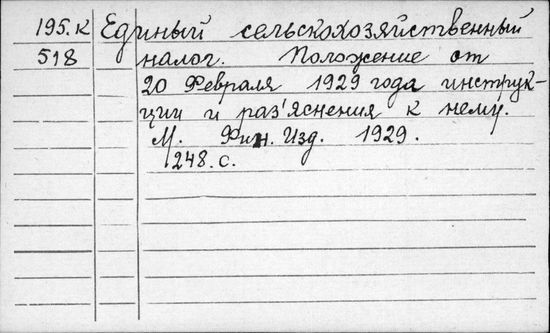 195.к Единый сельскохозяйственный
518 налог. Положение от
20 Февраля 1929 года инструк-
ции и раз'яснения к нему.
М. Фин. Изд. 1929.
248. с.